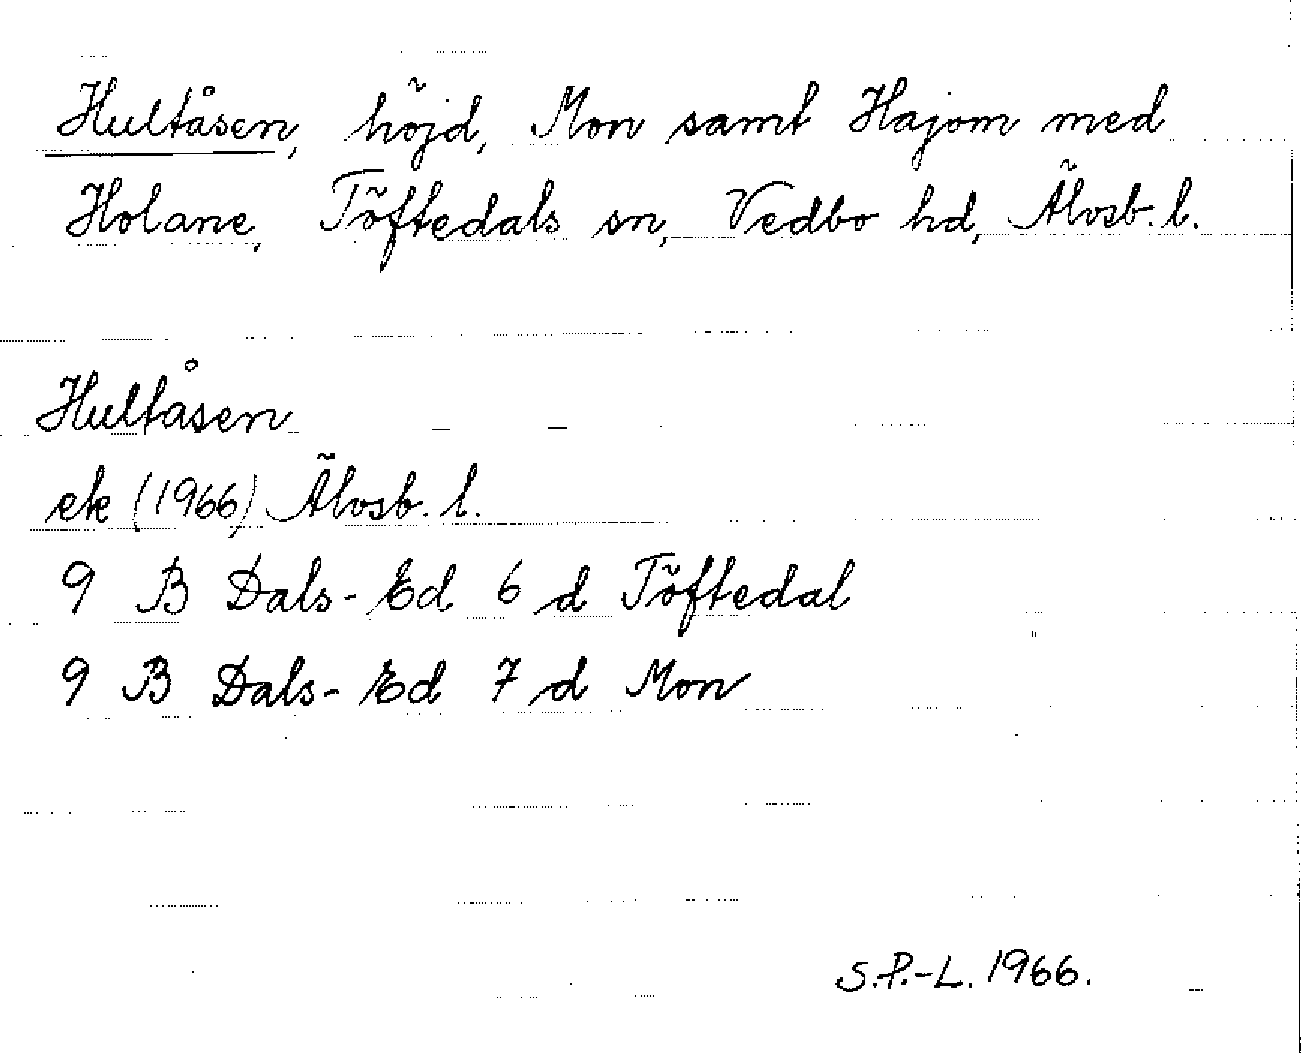 Hultåsen, höjd, Mon samt Hajom med
Holane, Töftedals sn, Vedbo hd, Älvsb. l.
Hultåsen
ek (1966) Älvsb. l.
9 B Dals-Ed 6 d Töftedal
9 B Dals-Ed 7 d Mon
S.P.-L. 1966.